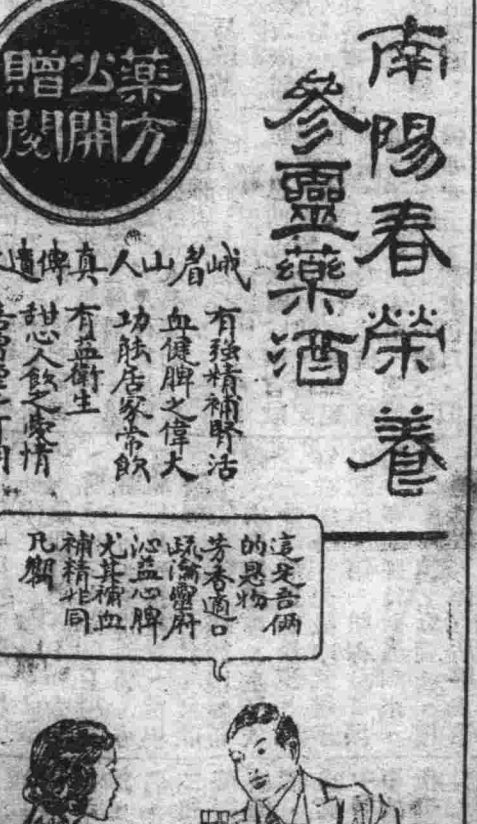 南陽春榮養
參靈藥酒
藥方
公開
贈閱
峨眉山人真傳遺
有強精補腎活
血健脾之偉大
功能居家常飲
有益衛生
甜心人飲之愛情
這是吾倆
的恩物
芳香適口
疏瀹靈府
沁益心脾
尤其補血
補精非同
凡響